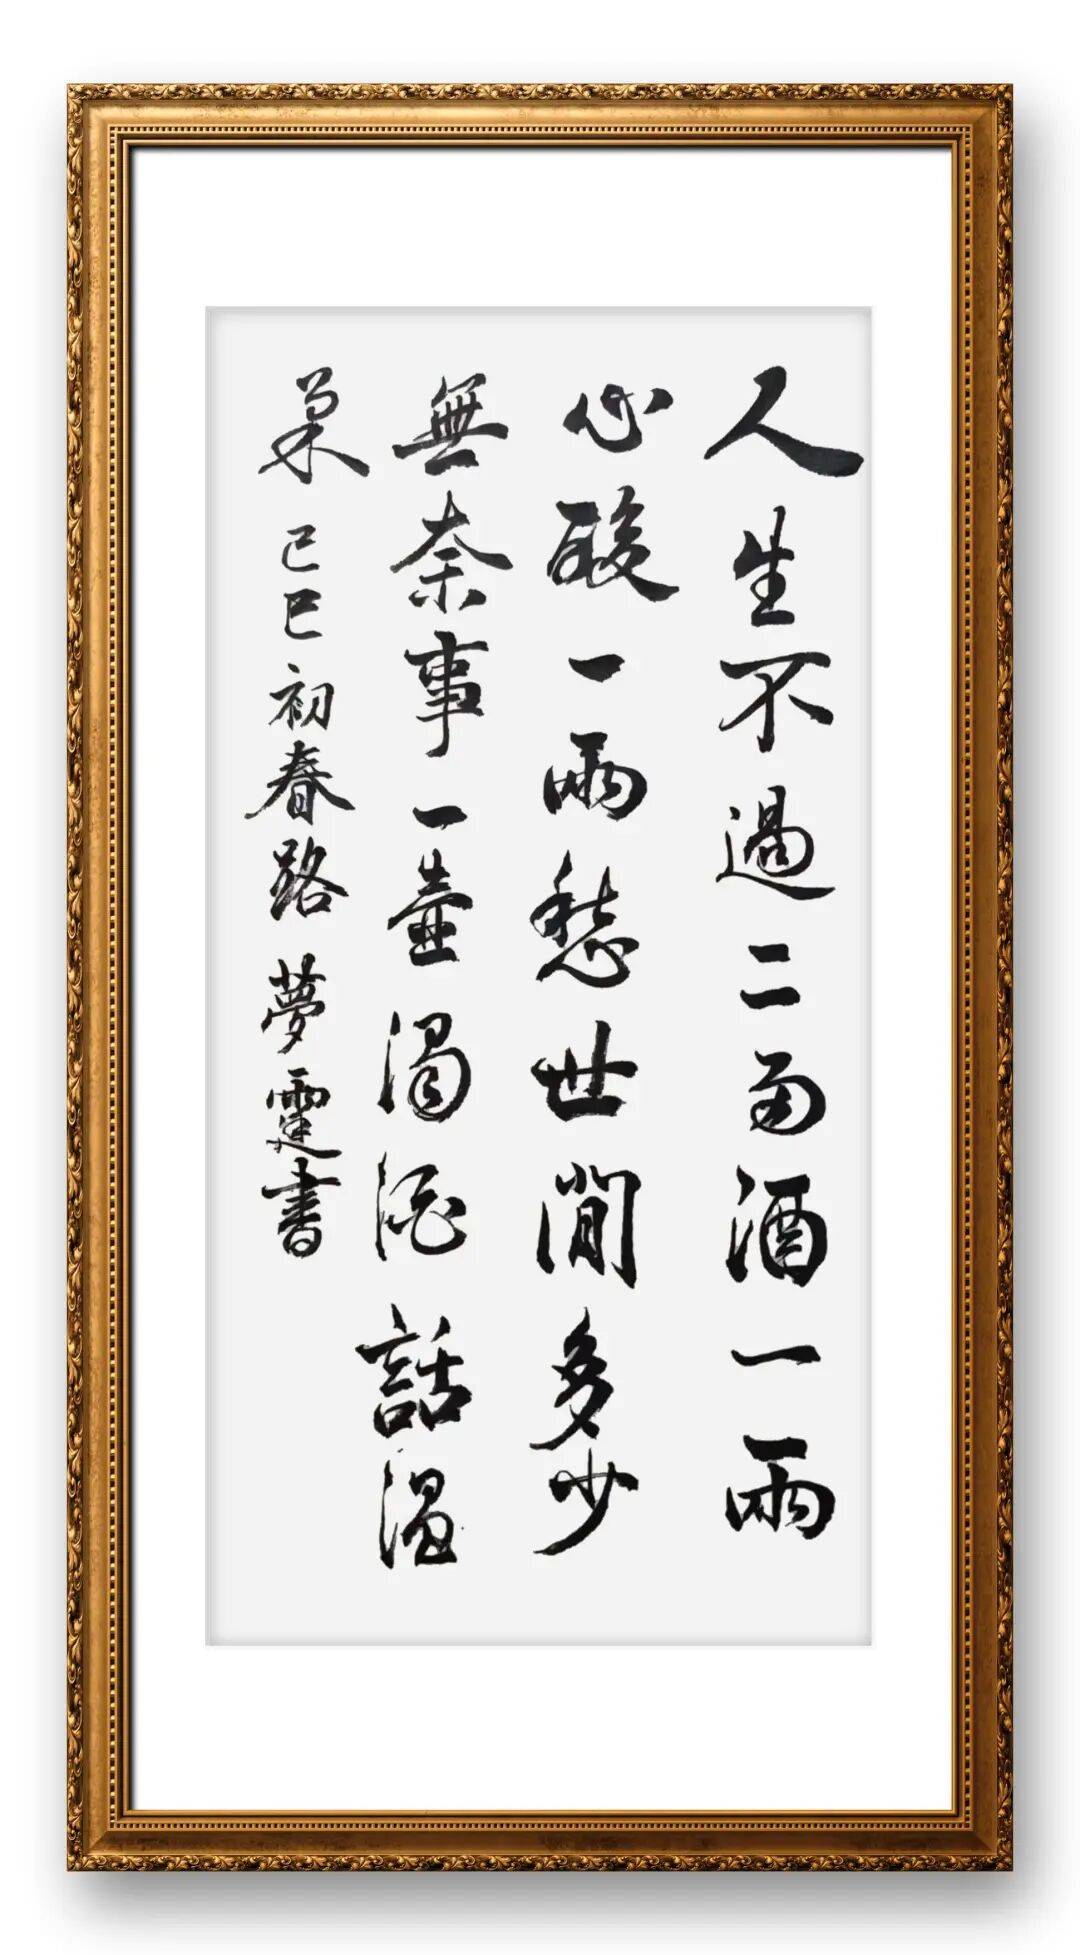 人生不過二兩酒一兩
心酸一兩愁世間多少
無奈事一壺濁酒話温
柔 己巳初春路夢霆書